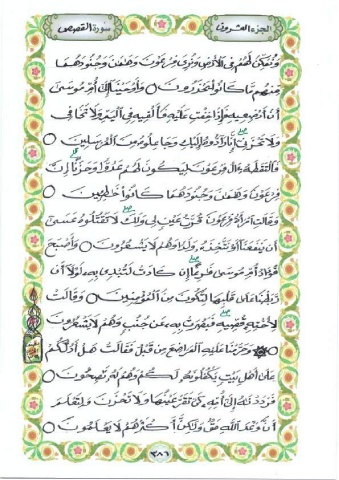 الجزء العشرون
سورة القصص
ونمكن لهم في الأرض ونري فرعون وهامان وجنودهما
منهم ما كانوا يحذرون ○ وأوحينا إلى أم موسى
أن أرضعيه فإذا خفت عليه فألقيه في اليم ولا تخافي
ولا تحزني إنا رادوه إليك وجاعلوه من المرسلين ○
فالتقطه آل فرعون ليكون لهم عدوا وحزنا إن
فرعون وهامان وجنودهما كانوا خاطئين ○
وقالت امرأت فرعون قرت عين لي ولك لا تقتلوه عسى
أن ينفعنا أو نتخذه ولدا وهم لا يشعرون ○ وأصبح
فؤاد أم موسى فارغا إن كادت لتبدي به لولا أن
ربطنا على قلبها لتكون من المؤمنين ○ وقالت
لأخته قصيه فبصرت به عن جنب وهم لا يشعرون
وحرمنا عليه المراضع من قبل فقالت هل أدلكم
على أهل بيت يكفلونه لكم وهم له ناصحون ○
فرددناه إلى أمه كي تقر عينها ولا تحزن ولتعلم
أن وعد الله حق ولكن أكثرهم لا يعلمون ○
٣٨٦